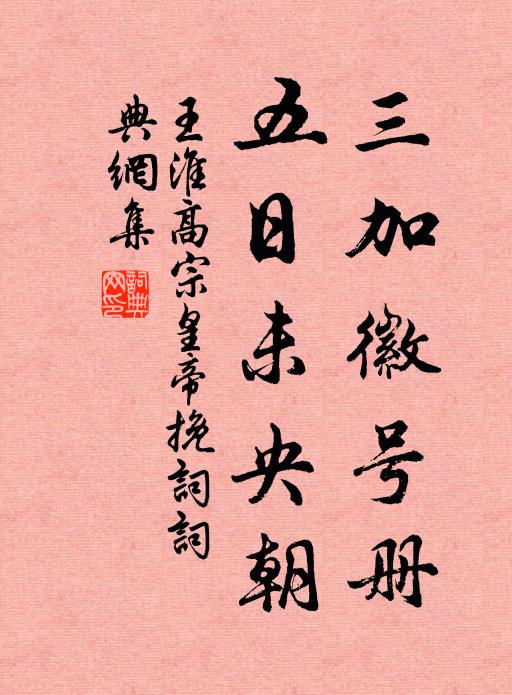 三加徽号册
五日未央朝
王淮高宗皇帝挽詞詞
典網集
詞典网印